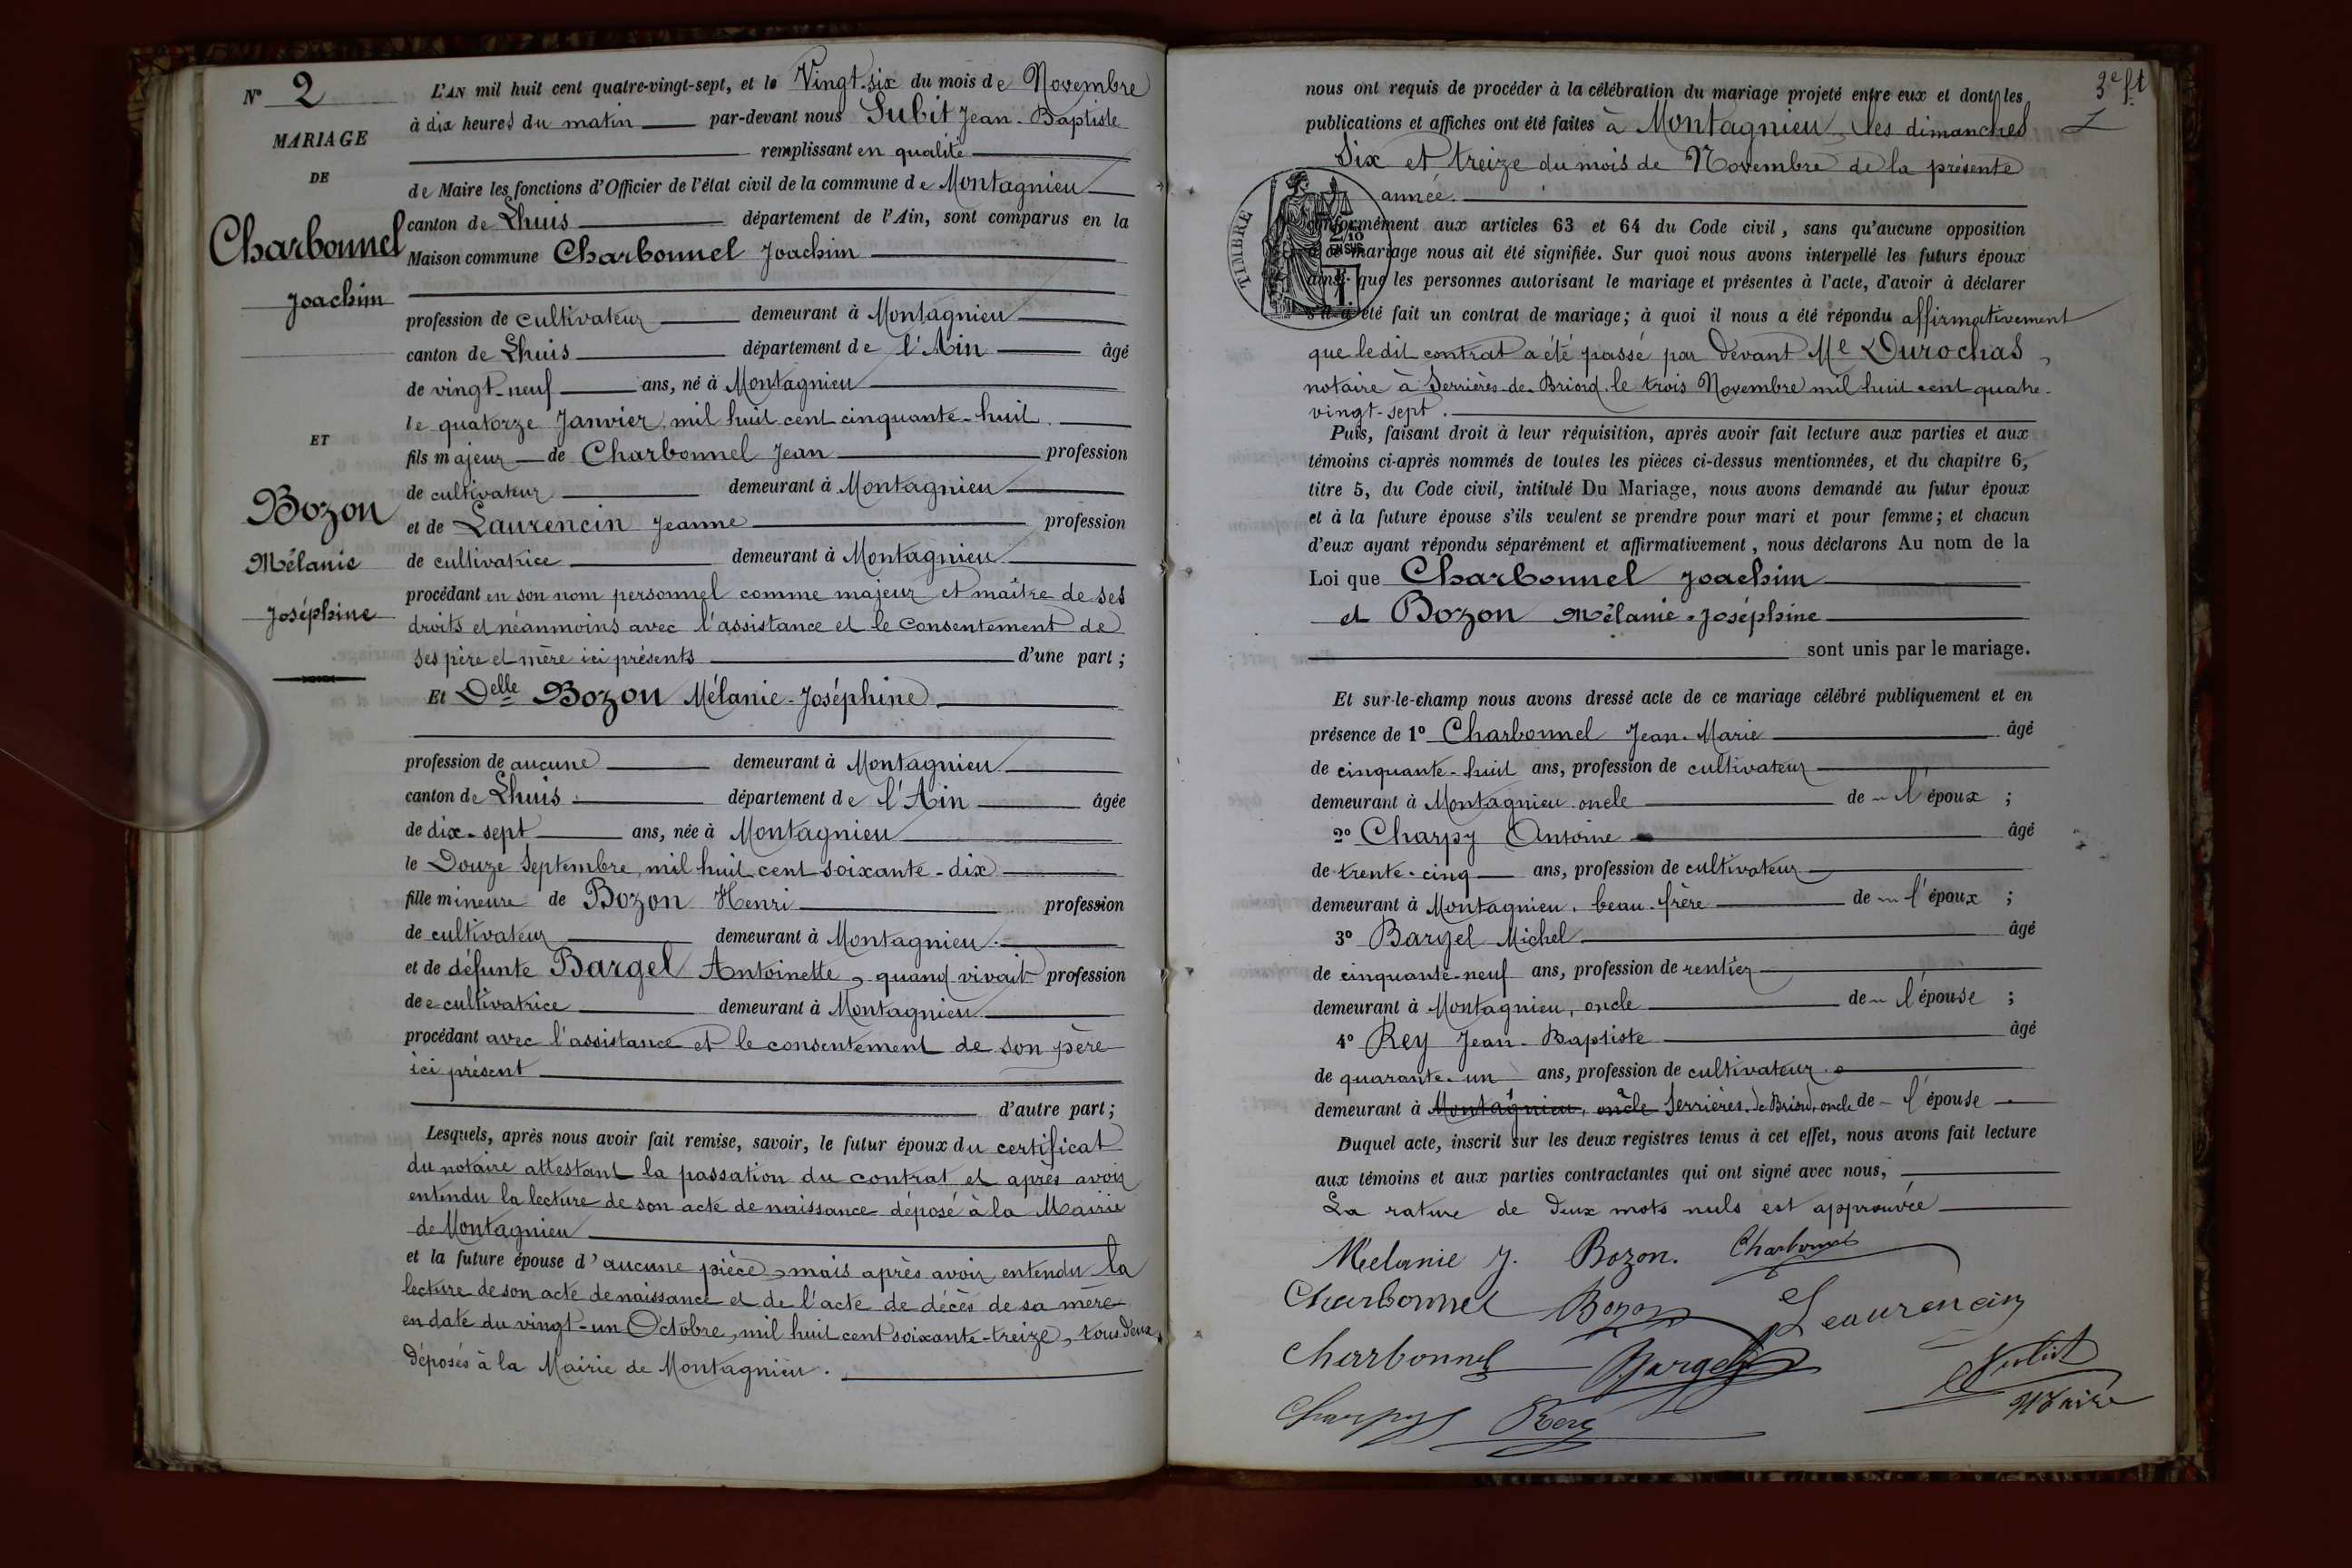 N° 2
MARIAGE
DE
Charbonnel
Joachim
ET
Bozon
Mélanie
Joséphine
L'AN mil huit cent quatre-vingt-sept, et le Vingt-six du mois de Novembre
à dix heures du matin par-devant nous Subit Jean-Baptiste
remplissant en qualité
de Maire les fonctions d'Officier de l'état civil de la commune de Montagnieu
canton de Lhuis département de l'Ain, sont comparus en la
Maison commune Charbonnel Joachim
profession de cultivateur demeurant à Montagnieu
canton de Lhuis département de l'Ain âgé
de vingt-neuf ans, né à Montagnieu
le quatorze Janvier, mil huit cent cinquante-huit.
fils majeur de Charbonnel Jean profession
de cultivateur demeurant à Montagnieu
et de Laurencin Jeanne profession
de cultivatrice demeurant à Montagnieu
procédant en son nom personnel comme majeur et maître de ses
droits et néanmoins avec l'assistance et le consentement de
ses père et mère ici présents d'une part;
Et Delle Bozon Mélanie-Joséphine
profession de aucune demeurant à Montagnieu
canton de Lhuis département de l'Ain âgée
de dix-sept ans, née à Montagnieu
le Douze Septembre, mil huit cent soixante-dix
fille mineure de Bozon Henri profession
de cultivateur demeurant à Montagnieu.
et de défunte Bargel Antoinette, quand vivait profession
de cultivatrice demeurant à Montagnieu
procédant avec l'assistance et le consentement de son père
ici présent
d'autre part;
Lesquels, après nous avoir fait remise, savoir, le futur époux du certificat
du notaire attestant la passation du contrat et après avoir
entendu la lecture de son acte de naissance déposé à la Mairie
de Montagnieu
et la future épouse d'aucune pièce, mais après avoir entendu la
lecture de son acte de naissance et de l'acte de décès de sa mère
en date du vingt-un Octobre, mil huit cent soixante-treize, tous deux
déposés à la Mairie de Montagnieu.
3e ft
nous ont requis de procéder à la célébration du mariage projeté entre eux et dont les
publications et affiches ont été faites à Montagnieu, les dimanches
Six et treize du mois de Novembre de la présente
année.
TIMBRE
2/10
EN SUS
conformément aux articles 63 et 64 du Code civil, sans qu'aucune opposition
à ce mariage nous ait été signifiée. Sur quoi nous avons interpellé les futurs époux
ainsi que les personnes autorisant le mariage et présentes à l'acte, d'avoir à déclarer
s'il a été fait un contrat de mariage; à quoi il nous a été répondu affirmativement
que ledit contrat a été passé par devant Me Durochas,
notaire à Serrières-de-Briord, le trois Novembre mil huit cent quatre-
vingt-sept.
Puis, faisant droit à leur réquisition, après avoir fait lecture aux parties et aux
témoins ci-après nommés de toutes les pièces ci-dessus mentionnées, et du chapitre 6,
titre 5, du Code civil, intitulé Du Mariage, nous avons demandé au futur époux
et à la future épouse s'ils veulent se prendre pour mari et pour femme; et chacun
d'eux ayant répondu séparément et affirmativement, nous déclarons Au nom de la
Loi que Charbonnel Joachim
et Bozon Mélanie-Joséphine
sont unis par le mariage.
Et sur-le-champ nous avons dressé acte de ce mariage célébré publiquement et en
présence de 1° Charbonnel Jean-Marie âgé
de cinquante-huit ans, profession de cultivateur
demeurant à Montagnieu oncle de l'époux;
2° Charpy Antoine âgé
de trente-cinq ans, profession de cultivateur
demeurant à Montagnieu, beau-frère de l'époux;
3° Bargel Michel âgé
de cinquante-neuf ans, profession de rentier
demeurant à Montagnieu, oncle de l'épouse;
4° Rey Jean-Baptiste âgé
de quarante-un ans, profession de cultivateur
demeurant à Montagnieu, oncle à Serrières-de-Briord, oncle de l'épouse
Duquel acte, inscrit sur les deux registres tenus à cet effet, nous avons fait lecture
aux témoins et aux parties contractantes qui ont signé avec nous,
La rature de deux mots nuls est approuvée
Mélanie J. Bozon. Charbonnel
Charbonnel Bozon Leaurencin
Charbonnel Bargel Subit
Maire
Charpy Rey